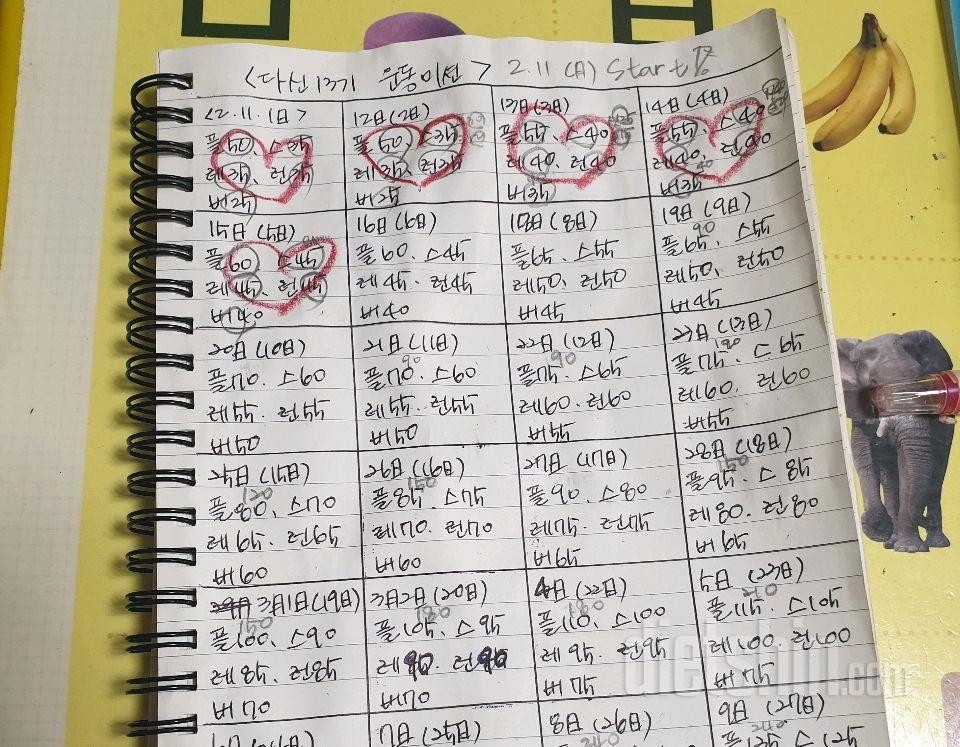 <다신13기 운동미션> 2.11(日) Start!
<2.11.1日>
플50. 스35
레35. 런35
버25
12日(2日)
플50. 스35
레35. 런35
버25
13日(3日)
플55. 스40
레40. 런40
버35
14日(4日)
플55. 스40
레40. 런40
버35
15日(5日)
플60 스45
레45. 런45
버40
16日(6日)
플60. 스45
레45. 런45
버40
18日(8日)
플65. 스55
레50. 런50
버45
19日(9日)
90
플65. 스55
레50. 런50
버45
20日(10日)
플70. 스60
레55. 런55
버50
21日(11日)
90
플70. 스60
레55. 런55
버50
22日(12日)
90
플75. 스65
레60. 런60
버55
23日(13日)
플75. 스65
레60. 런60
버55
25日(15日)
120
플80. 스70
레65. 런65
버60
26日(16日)
150
플85. 스75
레70. 런70
버60
27日(17日)
플90. 스80
레75. 런75
버65
28日(18日)
150
플95. 스85
레80. 런80
버65
3月1日(19日)
150
플100. 스90
레85. 런85
버70
3月2日(20日)
180
플105. 스95
레90. 런90
버70
4日(22日)
180
플110. 스100
레95. 런95
버75
5日(23日)
210
플115. 스105
레100. 런100
버75
7日(25日)
8日(26日)
240
9日(27日)
플125 스115
dietshin.com